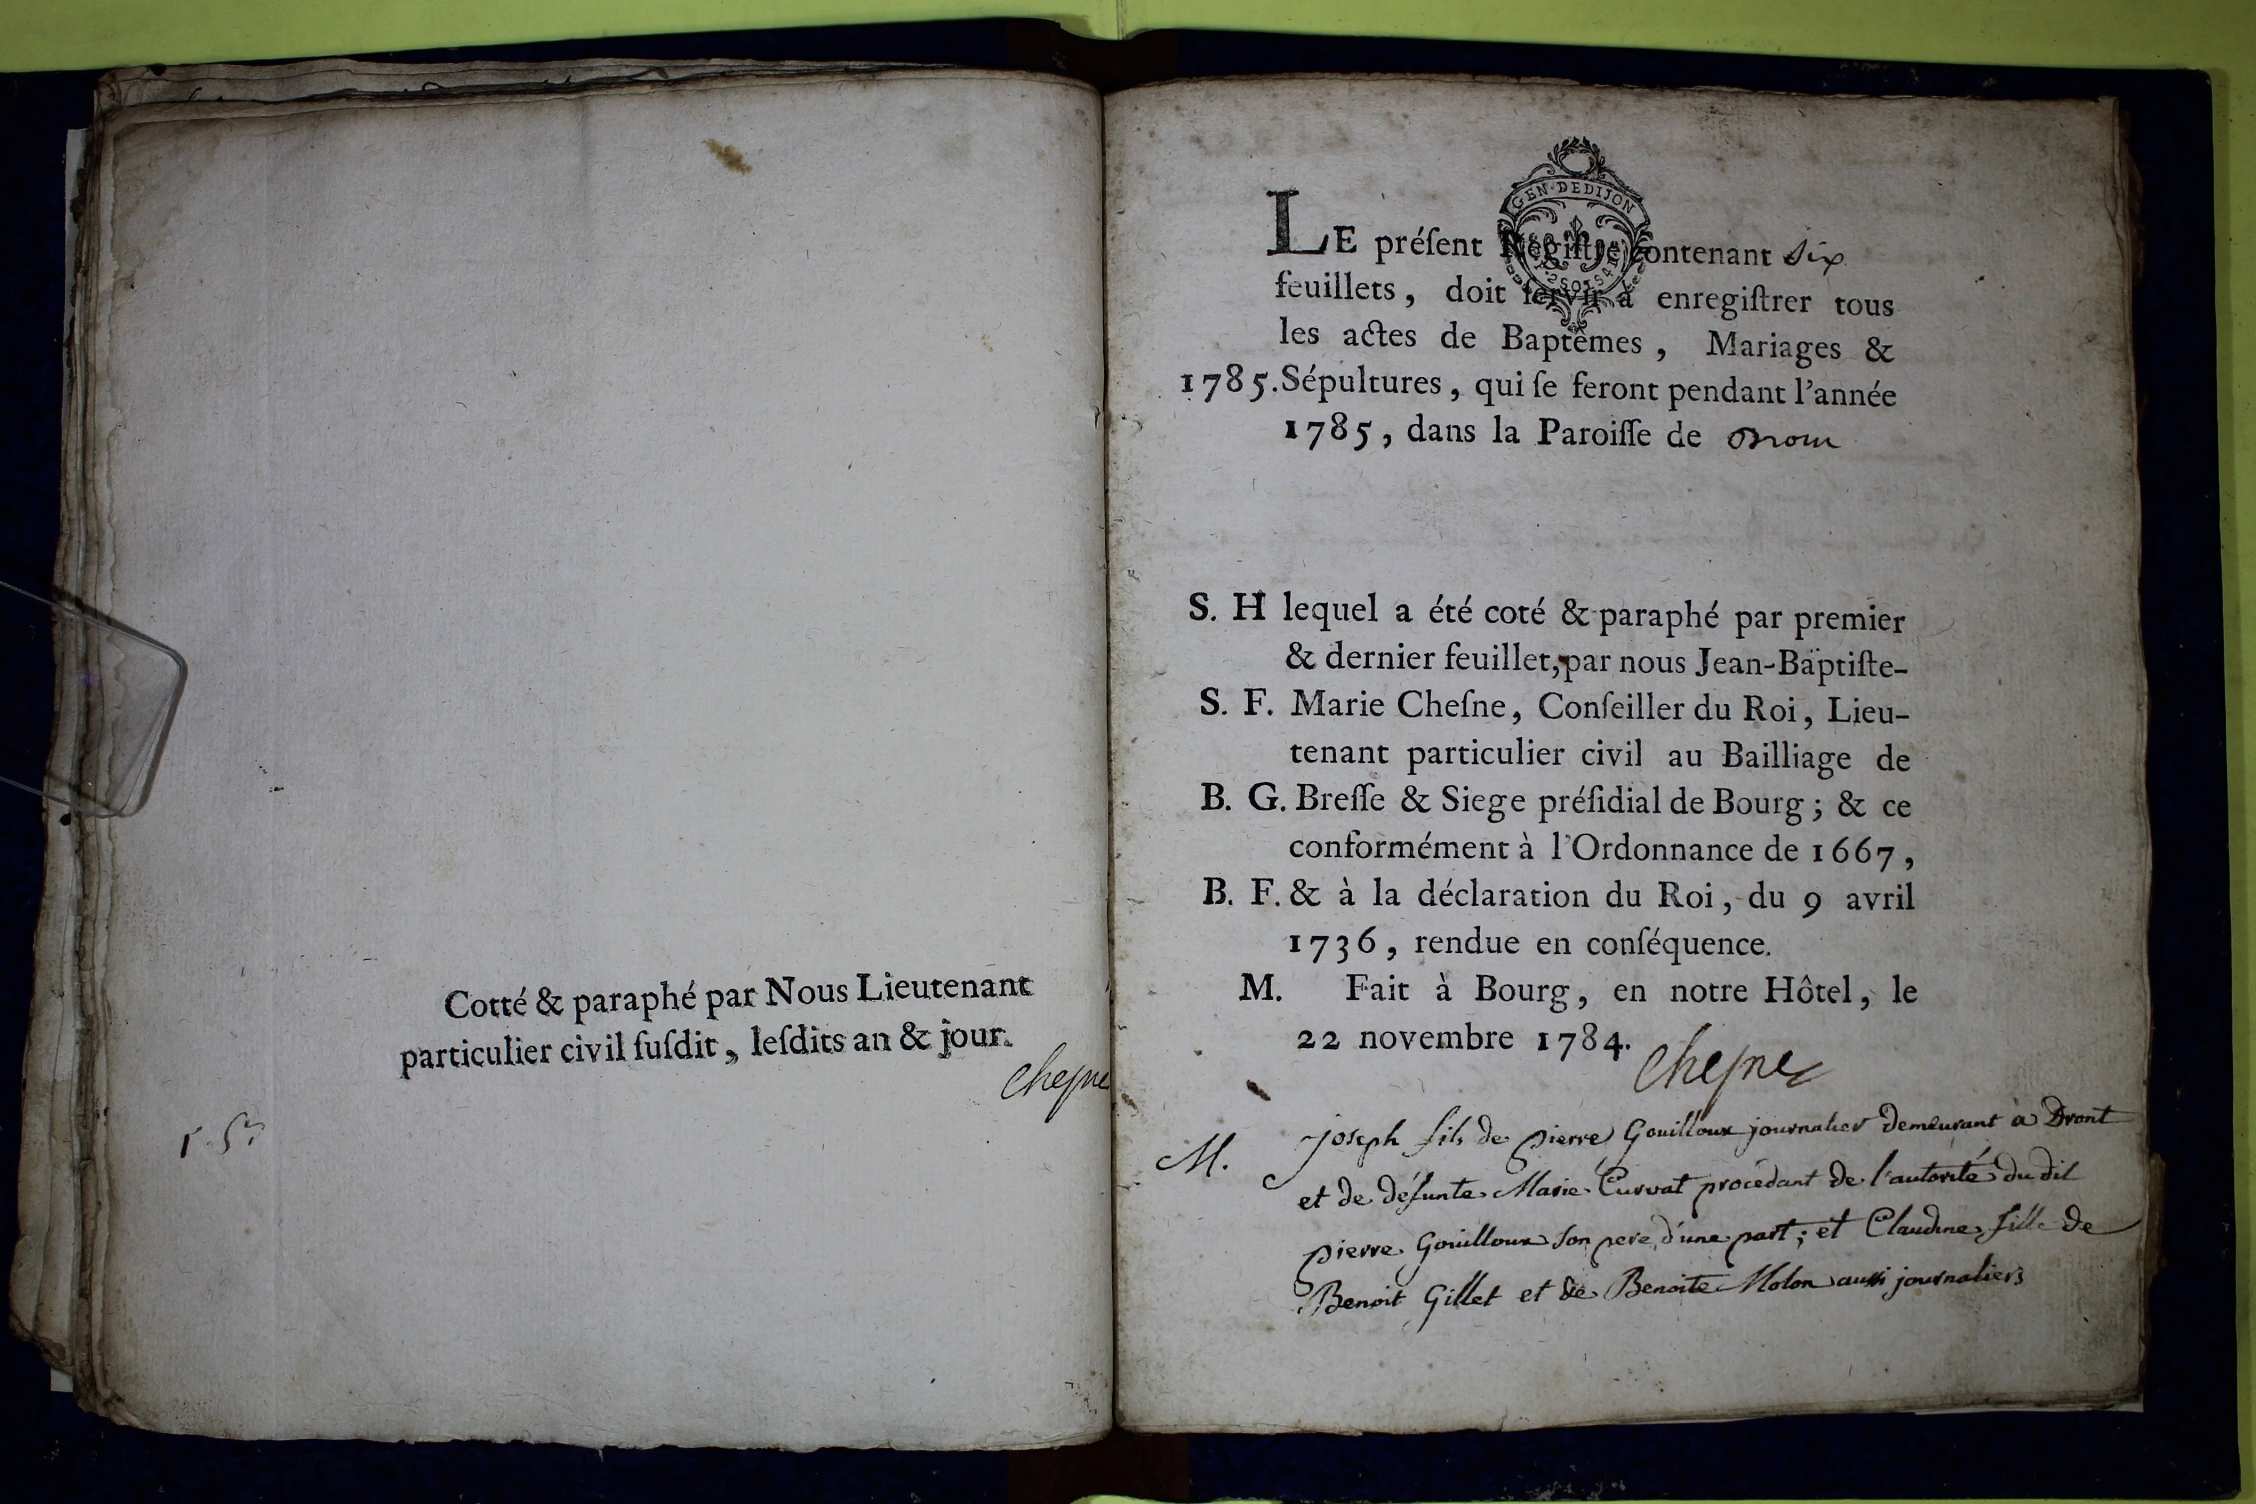 Cotté & paraphé par Nous Lieutenant
particulier civil ſuſdit, leſdits an & jour.
Cheſne
GEN·DEDIJON
LE préſent Régiſtre contenant six
feuillets, doit ſervir à enregiſtrer tous
les actes de Baptêmes, Mariages &
1785. Sépultures, qui ſe feront pendant l'année
1785, dans la Paroiſſe de
S. H lequel a été coté & paraphé par premier
& dernier feuillet, par nous Jean-Baptiſte-
S. F. Marie Cheſne, Conſeiller du Roi, Lieu-
tenant particulier civil au Bailliage de
B. G. Breſſe & Siege préſidial de Bourg; & ce
conformément à l'Ordonnance de 1667,
B. F. & à la déclaration du Roi, du 9 avril
1736, rendue en conſéquence.
M. Fait à Bourg, en notre Hôtel, le
22 novembre 1784.
Cheſne
M. joseph fils de pierre Gouilloux journalier demeurant à Dront
et de défunte Marie Curvat procédant de l'autorité du dit
pierre Gouilloux son pere, d'une part; et Claudine fille de
Benoit Gillet et de Benoite Molon aussi journaliers